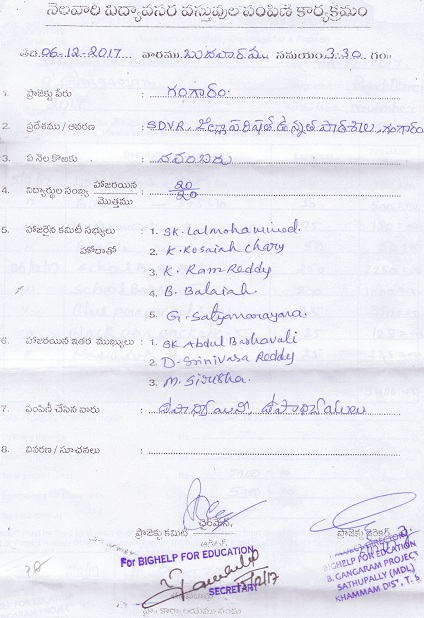 నెలవారి విద్యావసర వస్తువుల పంపిణీ కార్యక్రమం
తేది 06-12-2017 వారము బుధవారము సమయం 3:30 గం
1. ప్రాజెక్టు పేరు : గంగారం.
2. ప్రదేశము / ఆవరణ : S.D.V.R. జిల్లా పరిషత్ ఉన్నత పాఠశాల, గంగారం
3. ఏ నెల కొఱకు : నవంబరు
4. విద్యార్థుల సంఖ్య హాజరయిన 20
మొత్తము 20
5. హాజరైన కమిటీ సభ్యులు : 1. SK. Lalmohammod.
హోదాతో 2. K. Kosaiah Chary
3. K. Ram Reddy
4. B. Balaiah
5. G. Satyanarayana.
6. హాజరయిన ఇతర ముఖ్యులు : 1. SK Abdul Bashavali
2. D. Srinivasa Reddy
3. M. Sirisha.
7. పంపిణీ చేసిన వారు :
8. వివరణ / సూచనలు :
ప్రాజెక్టు కమిటీ ఛైర్మన్, ప్రాజెక్టు డైరెక్టర్
For BIGHELP FOR EDUCATION
SECRETARY
DIRECTOR
BIGHELP FOR EDUCATION
B. GANGARAM PROJECT
SATHUPALLY (MDL)
KHAMMAM DIST, T. S